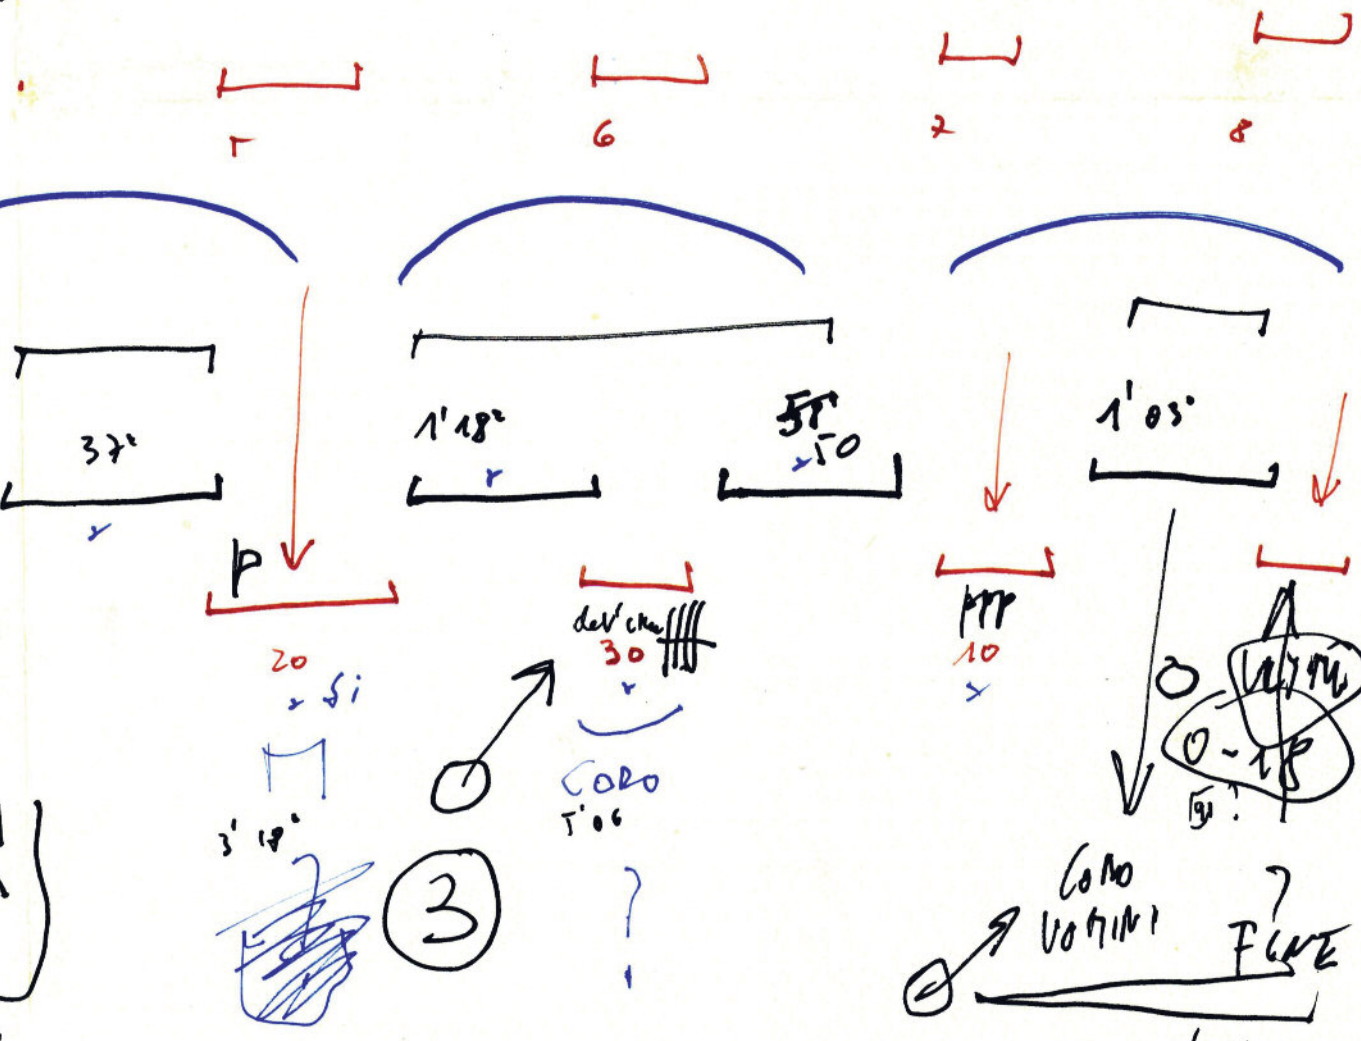 5 6 7 8
37"
1'18"
50
1'03"
p
20
si
3'18"
30
CORO
5'06
?
ppp
10
0
0-18
3
CORO
UOMINI
?
FINE